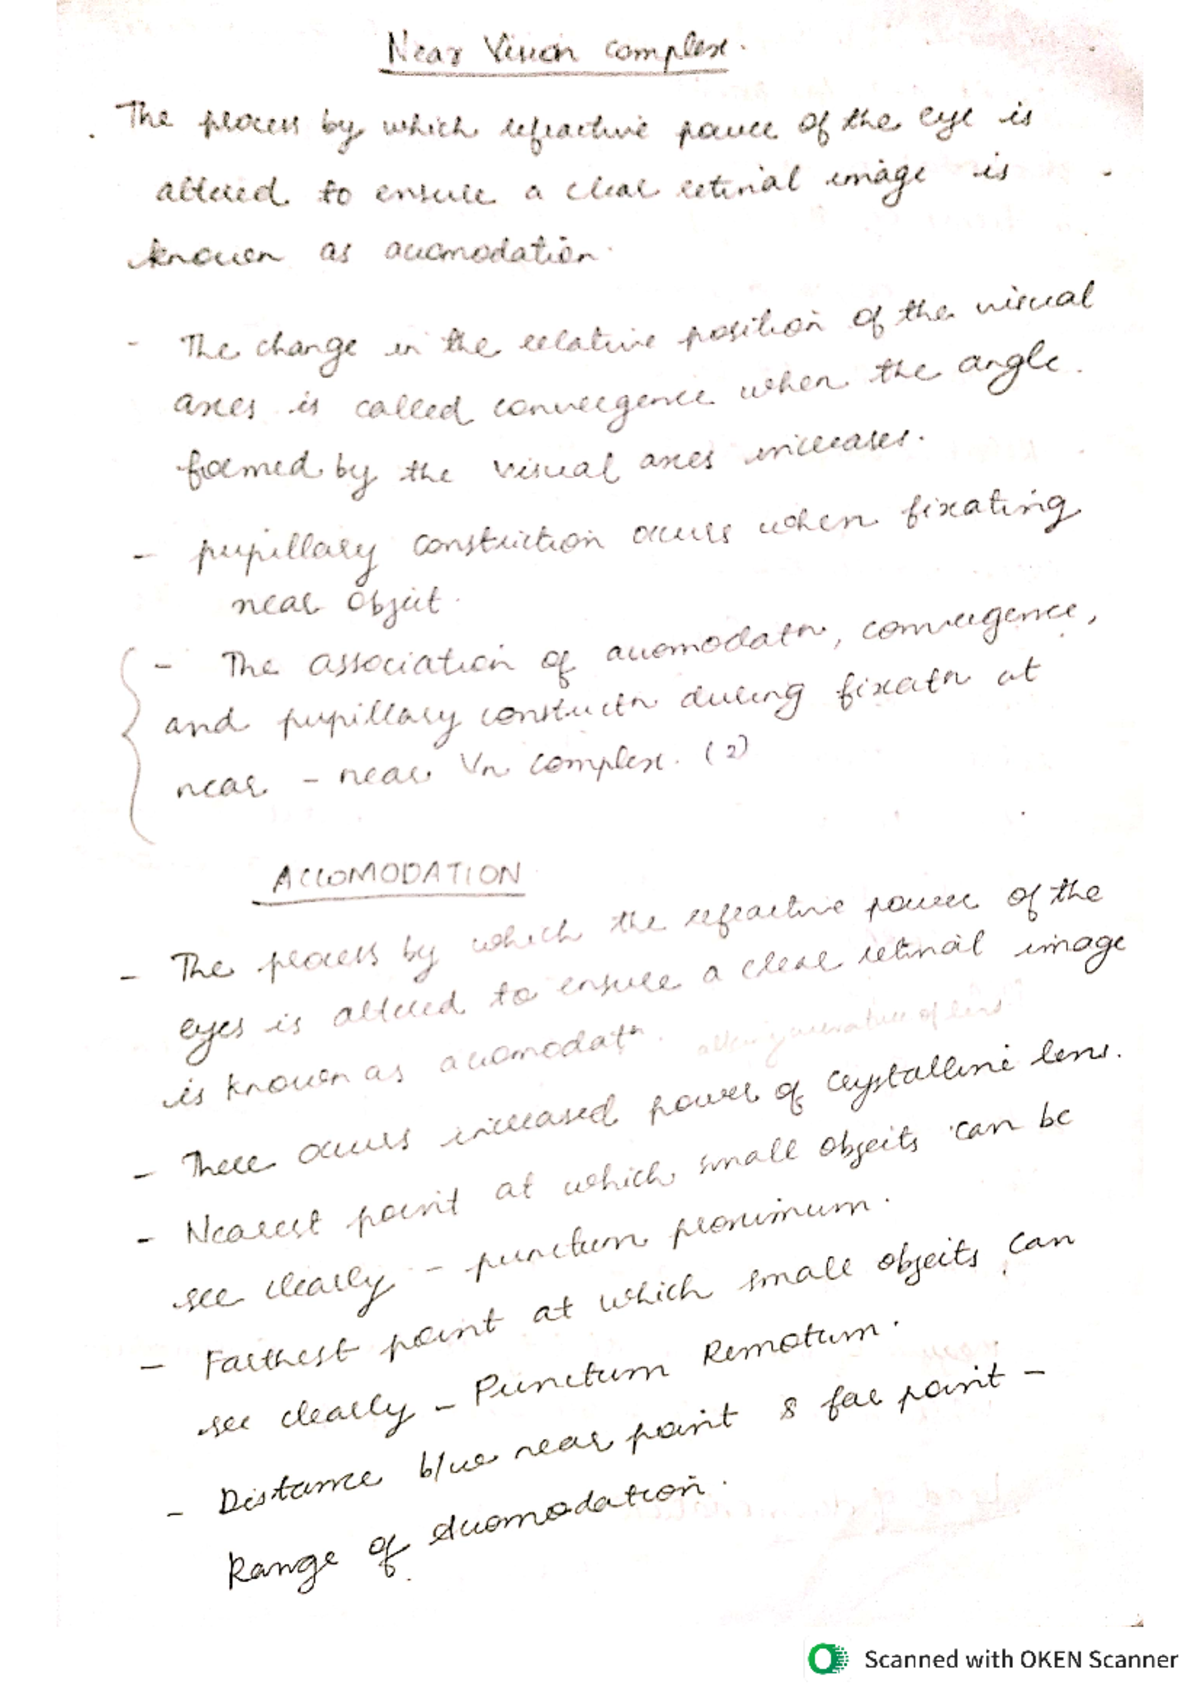 Near Vision complex.
The process by which refractive power of the eye is
altered to ensure a clear retinal image is
known as accomodation.
- The change in the relative position of the visual
axes is called convergence when the angle
formed by the visual axes increases.
- pupillary constriction occurs when fixating
near object.
- The association of accomodatn, convergence,
and pupillary constrictn during fixatn at
near - near Vn complex. (2)
ACCOMODATION
- The process by which the refractive power of the
eyes is altered to ensure a clear retinal image
is known as accomodatn.
of lens
- There occurs increased power of crystalline lens.
- Nearest point at which small objects can be
see clearly - punctum proximum.
- Farthest point at which small objects can
see clearly - Punctum Remotum.
- Distance b/we near point & far point -
Range of Accomodation.
Scanned with OKEN Scanner